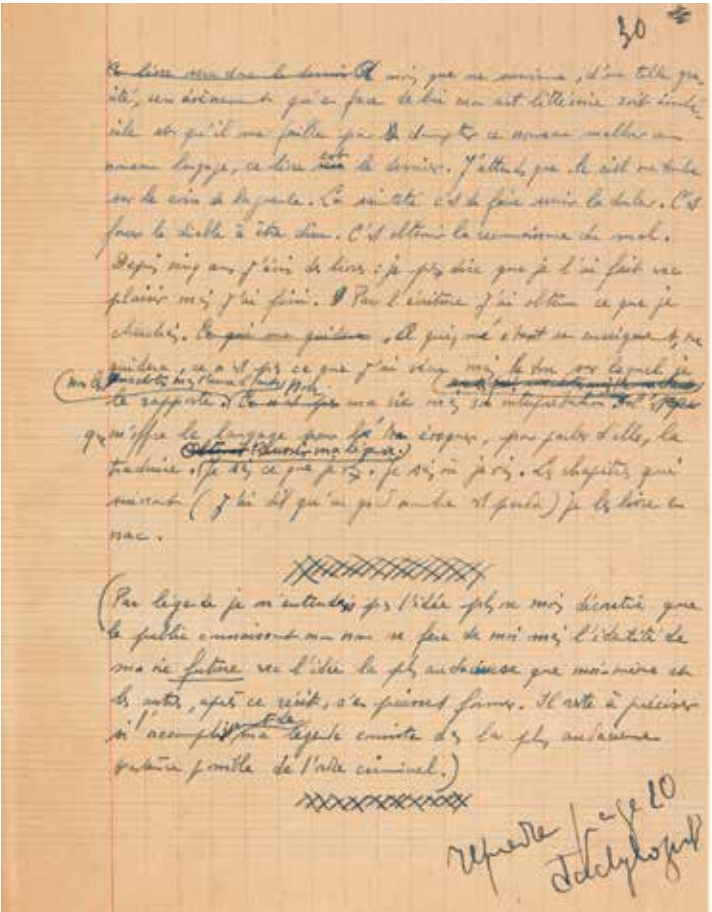 30
Ce livre sera donc le dernier A moins que ne survienne, d'une telle gra-
vité, un évènement qu'en face de lui mon art littéraire soit imbé-
cile et qu'il me faille pour dompter ce nouveau malheur un
nouveau langage, ce livre est le dernier. J'attends que le ciel me tombe
sur le coin de la gueule. La sainteté c'est de faire servir la douleur. C'est
forcer le diable à être dieu. C'est obtenir la reconnaissance du mal.
Depuis cinq ans j'écris des livres : je peux dire que je l'ai fait avec
plaisir mais j'ai fini. Par l'écriture j'ai obtenu ce que je
cherchais. Ce qui me guidera, Ce qui, m'étant un enseignement, me
guidera, ce n'est pas ce que j'ai vécu mais le ton sur lequel je
non les anecdotes mais l'œuvre d'art. Non
le rapporte. Ce n'est pas ma vie mais son interprétation c'est ce
que m'offre le langage pour l'évoquer, pour parler d'elle, la
Réussir ma légende.
traduire. Je sais ce que je veux. Je sais où je vais. Les chapitres qui
suivront (j'ai dit qu'un grand nombre est perdu) je les livre en
vrac.
(Par légende je n'entendais pas l'idée plus ou moins décorative que
le public connaissant mon nom se fera de moi mais l'identité de
ma vie future avec l'idée la plus audacieuse que moi-même et
les autres, après ce récit, s'en puissent former. Il reste à préciser
si l'accomplissement de ma légende consiste dans la plus audacieuse
existence possible de l'ordre criminel.)
reprendre page 20
dactylographié